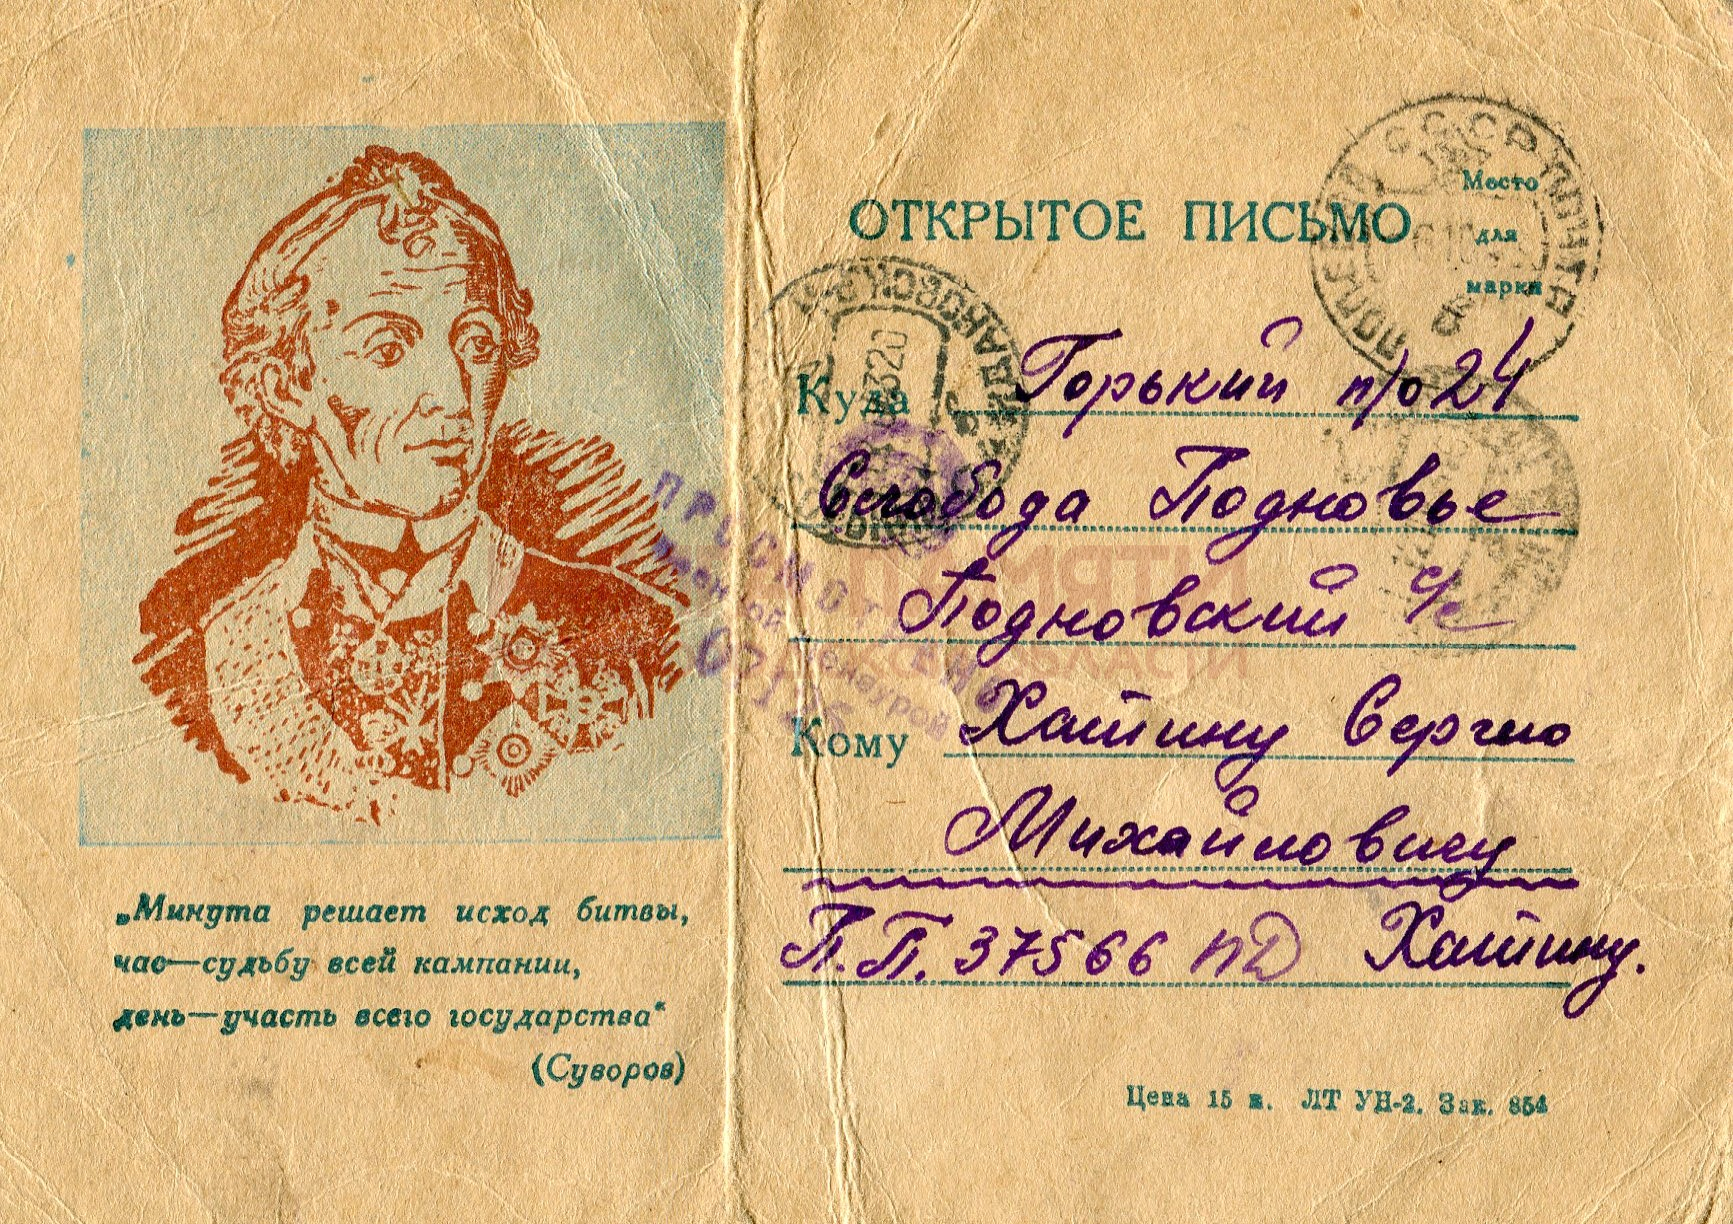 ОТКРЫТОЕ ПИСЬМО
Место
для
марки
Куда Горький п/о 24
Слобода Подновье
Подновский с/с
Кому Хатину Сергею
Михайловичу
П.П. 37566 ПД Хатину.
Цена 15 к. ЛТ УН-2. Зак. 854
„Минута решает исход битвы,
час—судьбу всей кампании,
день—участь всего государства“
(Суворов)
ПРОСМОТРЕНО
Военной Цензурой
СССР
ПАМЯТИ
ОБЛАСТИ